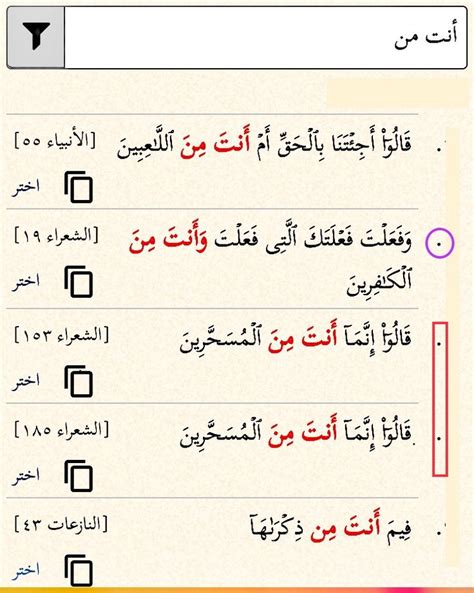 أنت من
قَالُوٓا۟ أَجِئْتَنَا بِٱلْحَقِّ أَمْ أَنتَ مِنَ ٱللَّٰعِبِينَ [الأنبياء ٥٥]
اختر
وَفَعَلْتَ فَعْلَتَكَ ٱلَّتِى فَعَلْتَ وَأَنتَ مِنَ [الشعراء ١٩]
ٱلْكَٰفِرِينَ
اختر
قَالُوٓا۟ إِنَّمَآ أَنتَ مِنَ ٱلْمُسَحَّرِينَ [الشعراء ١٥٣]
اختر
قَالُوٓا۟ إِنَّمَآ أَنتَ مِنَ ٱلْمُسَحَّرِينَ [الشعراء ١٨٥]
اختر
فِيمَ أَنتَ مِن ذِكْرَىٰهَآ [النازعات ٤٣]
اختر